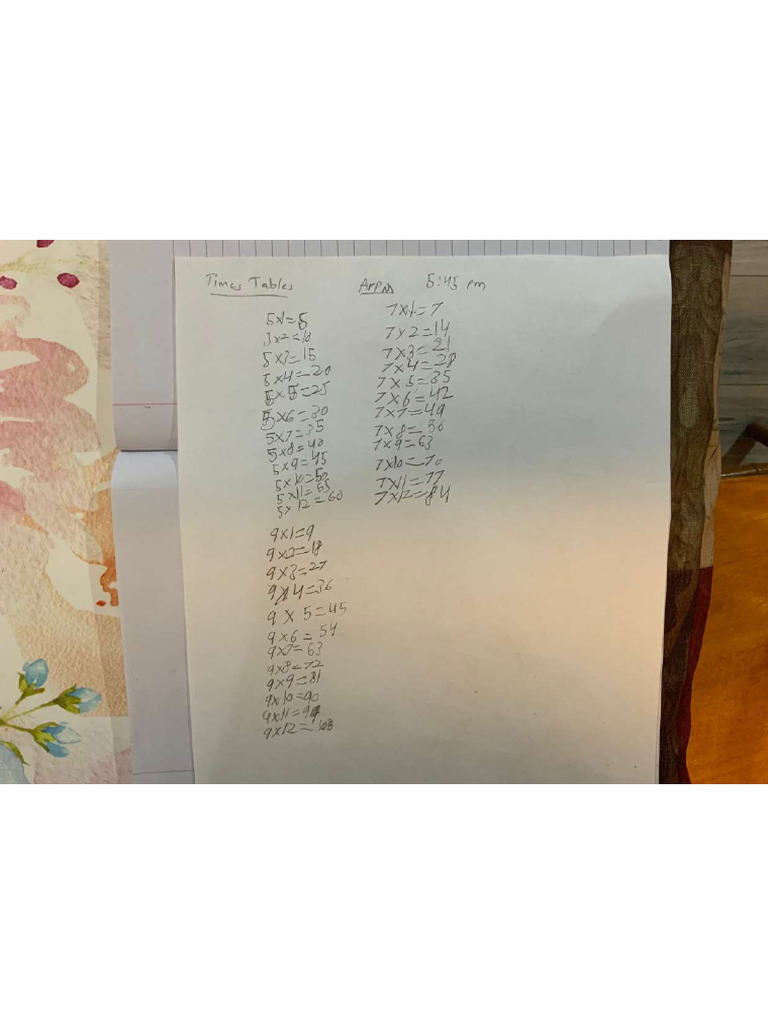 Times Tables Arpan 5:45 pm
5x1=5
5x2=10
5x3=15
5x4=20
5x5=25
5x6=30
5x7=35
5x8=40
5x9=45
5x10=50
5x11=55
5x12=60
7x1=7
7x2=14
7x3=21
7x4=28
7x5=35
7x6=42
7x7=49
7x8=56
7x9=63
7x10=70
7x11=77
7x12=84
9x1=9
9x2=18
9x3=27
9x4=36
9x5=45
9x6=54
9x7=63
9x8=72
9x9=81
9x10=90
9x11=99
9x12=108